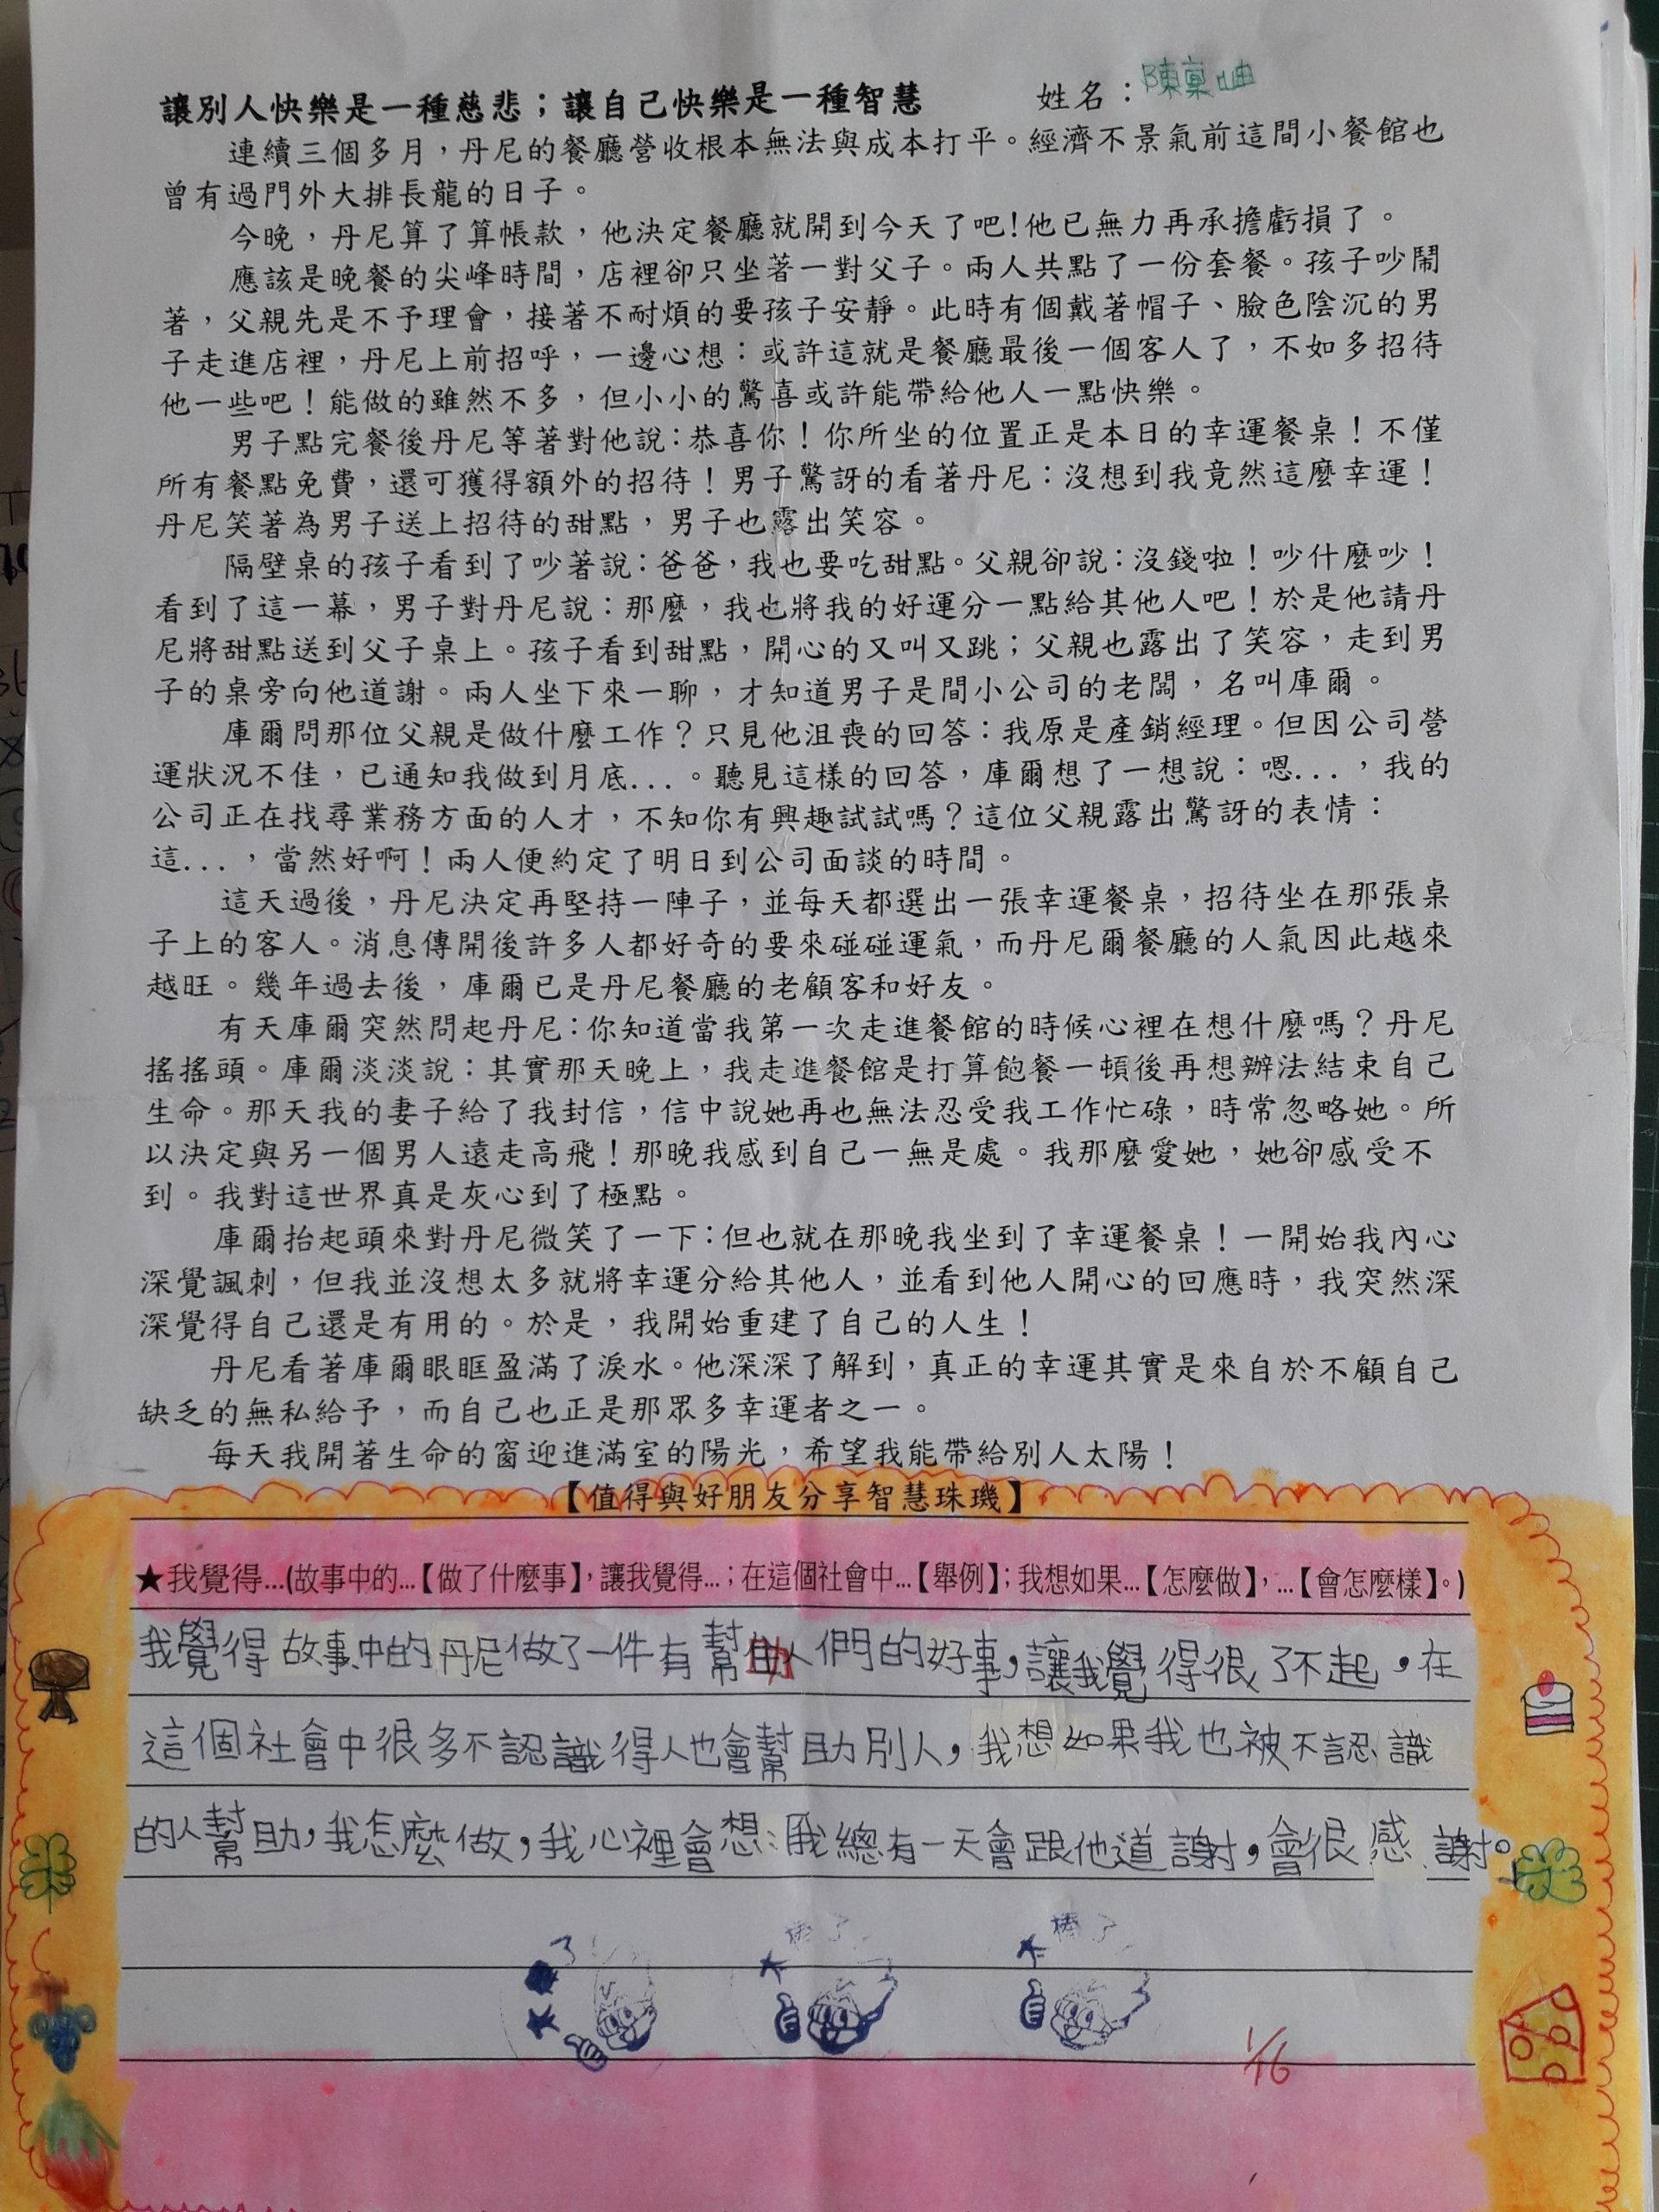 讓別人快樂是一種慈悲；讓自己快樂是一種智慧 姓名：陳稟岫
連續三個多月，丹尼的餐廳營收根本無法與成本打平。經濟不景氣前這間小餐館也
曾有過門外大排長龍的日子。
今晚，丹尼算了算帳款，他決定餐廳就開到今天了吧！他已無力再承擔虧損了。
應該是晚餐的尖峰時間，店裡卻只坐著一對父子。兩人共點了一份套餐。孩子吵鬧
著，父親先是不予理會，接著不耐煩的要孩子安靜。此時有個戴著帽子、臉色陰沉的男
子走進店裡，丹尼上前招呼，一邊心想：或許這就是餐廳最後一個客人了，不如多招待
他一些吧！能做的雖然不多，但小小的驚喜或許能帶給他人一點快樂。
男子點完餐後丹尼等著對他說：恭喜你！你所坐的位置正是本日的幸運餐桌！不僅
所有餐點免費，還可獲得額外的招待！男子驚訝的看著丹尼：沒想到我竟然這麼幸運！
丹尼笑著為男子送上招待的甜點，男子也露出笑容。
隔壁桌的孩子看到了吵著說：爸爸，我也要吃甜點。父親卻說：沒錢啦！吵什麼吵！
看到了這一幕，男子對丹尼說：那麼，我也將我的好運分一點給其他人吧！於是他請丹
尼將甜點送到父子桌上。孩子看到甜點，開心的又叫又跳；父親也露出了笑容，走到男
子的桌旁向他道謝。兩人坐下來一聊，才知道男子是間小公司的老闆，名叫庫爾。
庫爾問那位父親是做什麼工作？只見他沮喪的回答：我原是產銷經理。但因公司營
運狀況不佳，已通知我做到月底...。聽見這樣的回答，庫爾想了一想說：嗯...，我的
公司正在找尋業務方面的人才，不知你有興趣試試嗎？這位父親露出驚訝的表情：
這...，當然好啊！兩人便約定了明日到公司面談的時間。
這天過後，丹尼決定再堅持一陣子，並每天都選出一張幸運餐桌，招待坐在那張桌
子上的客人。消息傳開後許多人都好奇的要來碰碰運氣，而丹尼爾餐廳的人氣因此越來
越旺。幾年過去後，庫爾已是丹尼餐廳的老顧客和好友。
有天庫爾突然問起丹尼：你知道當我第一次走進餐館的時候心裡在想什麼嗎？丹尼
搖搖頭。庫爾淡淡說：其實那天晚上，我走進餐館是打算飽餐一頓後再想辦法結束自己
生命。那天我的妻子給了我封信，信中說她再也無法忍受我工作忙碌，時常忽略她。所
以決定與另一個男人遠走高飛！那晚我感到自己一無是處。我那麼愛她，她卻感受不
到。我對這世界真是灰心到了極點。
庫爾抬起頭來對丹尼微笑了一下：但也就在那晚我坐到了幸運餐桌！一開始我內心
深覺諷刺，但我並沒想太多就將幸運分給其他人，並看到他人開心的回應時，我突然深
深覺得自己還是有用的。於是，我開始重建了自己的人生！
丹尼看著庫爾眼眶盈滿了淚水。他深深了解到，真正的幸運其實是來自於不顧自己
缺乏的無私給予，而自己也正是那眾多幸運者之一。
每天我開著生命的窗迎進滿室的陽光，希望我能帶給別人太陽！
【值得與好朋友分享智慧珠璣】
★我覺得...(故事中的...【做了什麼事】，讓我覺得...；在這個社會中...【舉例】；我想如果...【怎麼做】，...【會怎麼樣】。)
我覺得故事中的丹尼做了一件有幫助人們的好事，讓我覺得很了不起，在
這個社會中很多不認識得人也會幫助別人，我想如果我也被不認識
的人幫助，我怎麼做，我心裡會想：我總有一天會跟他道謝，會很感謝。
太棒了
太棒了
太棒了
1/16